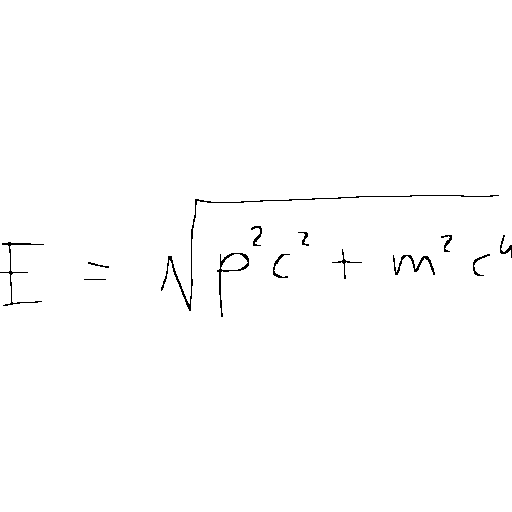 E = √(p²c² + m²c⁴)